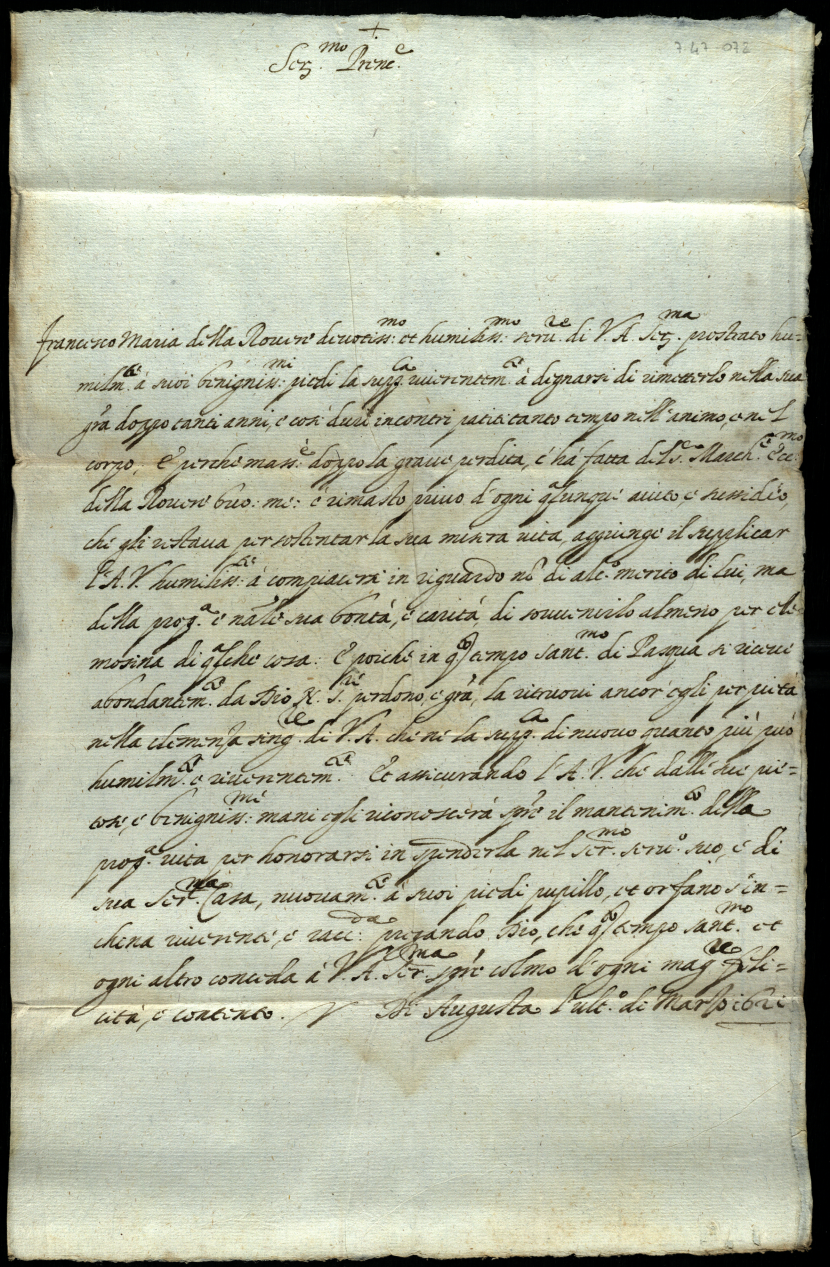 +
747-072
Ser.mo Prenc.e
Francesco Maria della Rovere devotiss:mo et humiliss:mo seru.re di V. A. Ser.ma prostrato hu=
milm.te à suoi benigniss:mi piedi la supp.ca riverentem.te à degnarsi di rimetterlo nella sua
grã doppo tanti anni, e così duri incontri patiti tanto tempo nell'animo, e nel
corpo, E perche mass.e doppo la grave perdita, c'hà fatta del S.r March.e Ecc.mo
della Rovere buo: me: è rimasto privo d'ogni qlunque aiuto e sussidio,
che gli restava per sostentar la sua misera vita, aggiunge il supplicar
l'A. V. humiliss:te à compiacersi in riguardo nõ di alc.o merito di lui, ma
della prop.a e nãle sua bontà, e carità, di sovvenirlo almeno per ele=
mosina di qlche cosa: E poiche in q.o tempo sant.mo di Pasqua si riceve
abondantem.te da Dio N. S.re perdono, e grã, la ritruovi ancor'egli per pietà
nella clemenza sing.re di V. A. che ne la supp.ca di nuovo quanto più può
humilm.te e riverentem.te Et assicurando l'A. V. che dalle sue pie=
tose, e benigniss:me mani egli riconoscerà spre il mantenim.to della
prop.a vita per honorarsi in spenderla nel Ser.mo seru.o suo, e di
sua Ser.ma Casa, nuovam.te à suoi piedi pupillo, et orfano s'in=
china riverente, e racc:da pregando Dio, che q.o tempo sant.mo et
ogni altro conceda à V. A. Ser.ma spre colmo d'ogni mag.re feli=
cità, e contento. Di Augusta l'ult.o di Marzo 1621